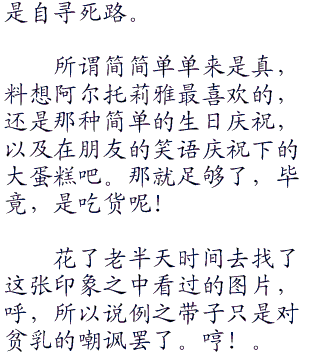 是自寻死路。
所谓简简单单来是真，
料想阿尔托莉雅最喜欢的，
还是那种简单的生日庆祝，
以及在朋友的笑语庆祝下的
大蛋糕吧。那就足够了，毕
竟，是吃货呢！
花了老半天时间去找了
这张印象之中看过的图片，
呼，所以说例之带子只是对
贫乳的嘲讽罢了。哼！。